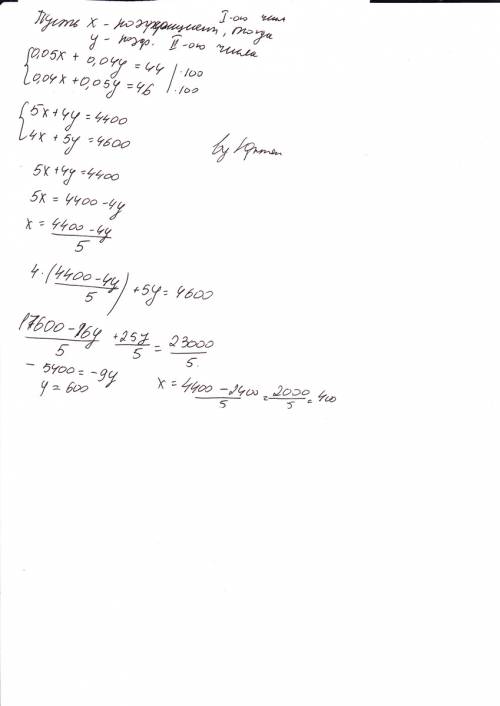 Пусть x - коэффициент I-ого числ, тогда
y - коэф. II-ого числа
{0,05x + 0,04y = 44 | ·100
{0,04x + 0,05y = 46 | ·100
{5x + 4y = 4400
{4x + 5y = 4600
by
5x + 4y = 4400
5x = 4400 - 4y
x = (4400 - 4y)/5
4·((4400 - 4y)/5) + 5y = 4600
(17600 - 16y)/5 + 25y/5 = 23000/5
- 5400 = -9y
y = 600
x = (4400 - 2400)/5 = 2000/5 = 400